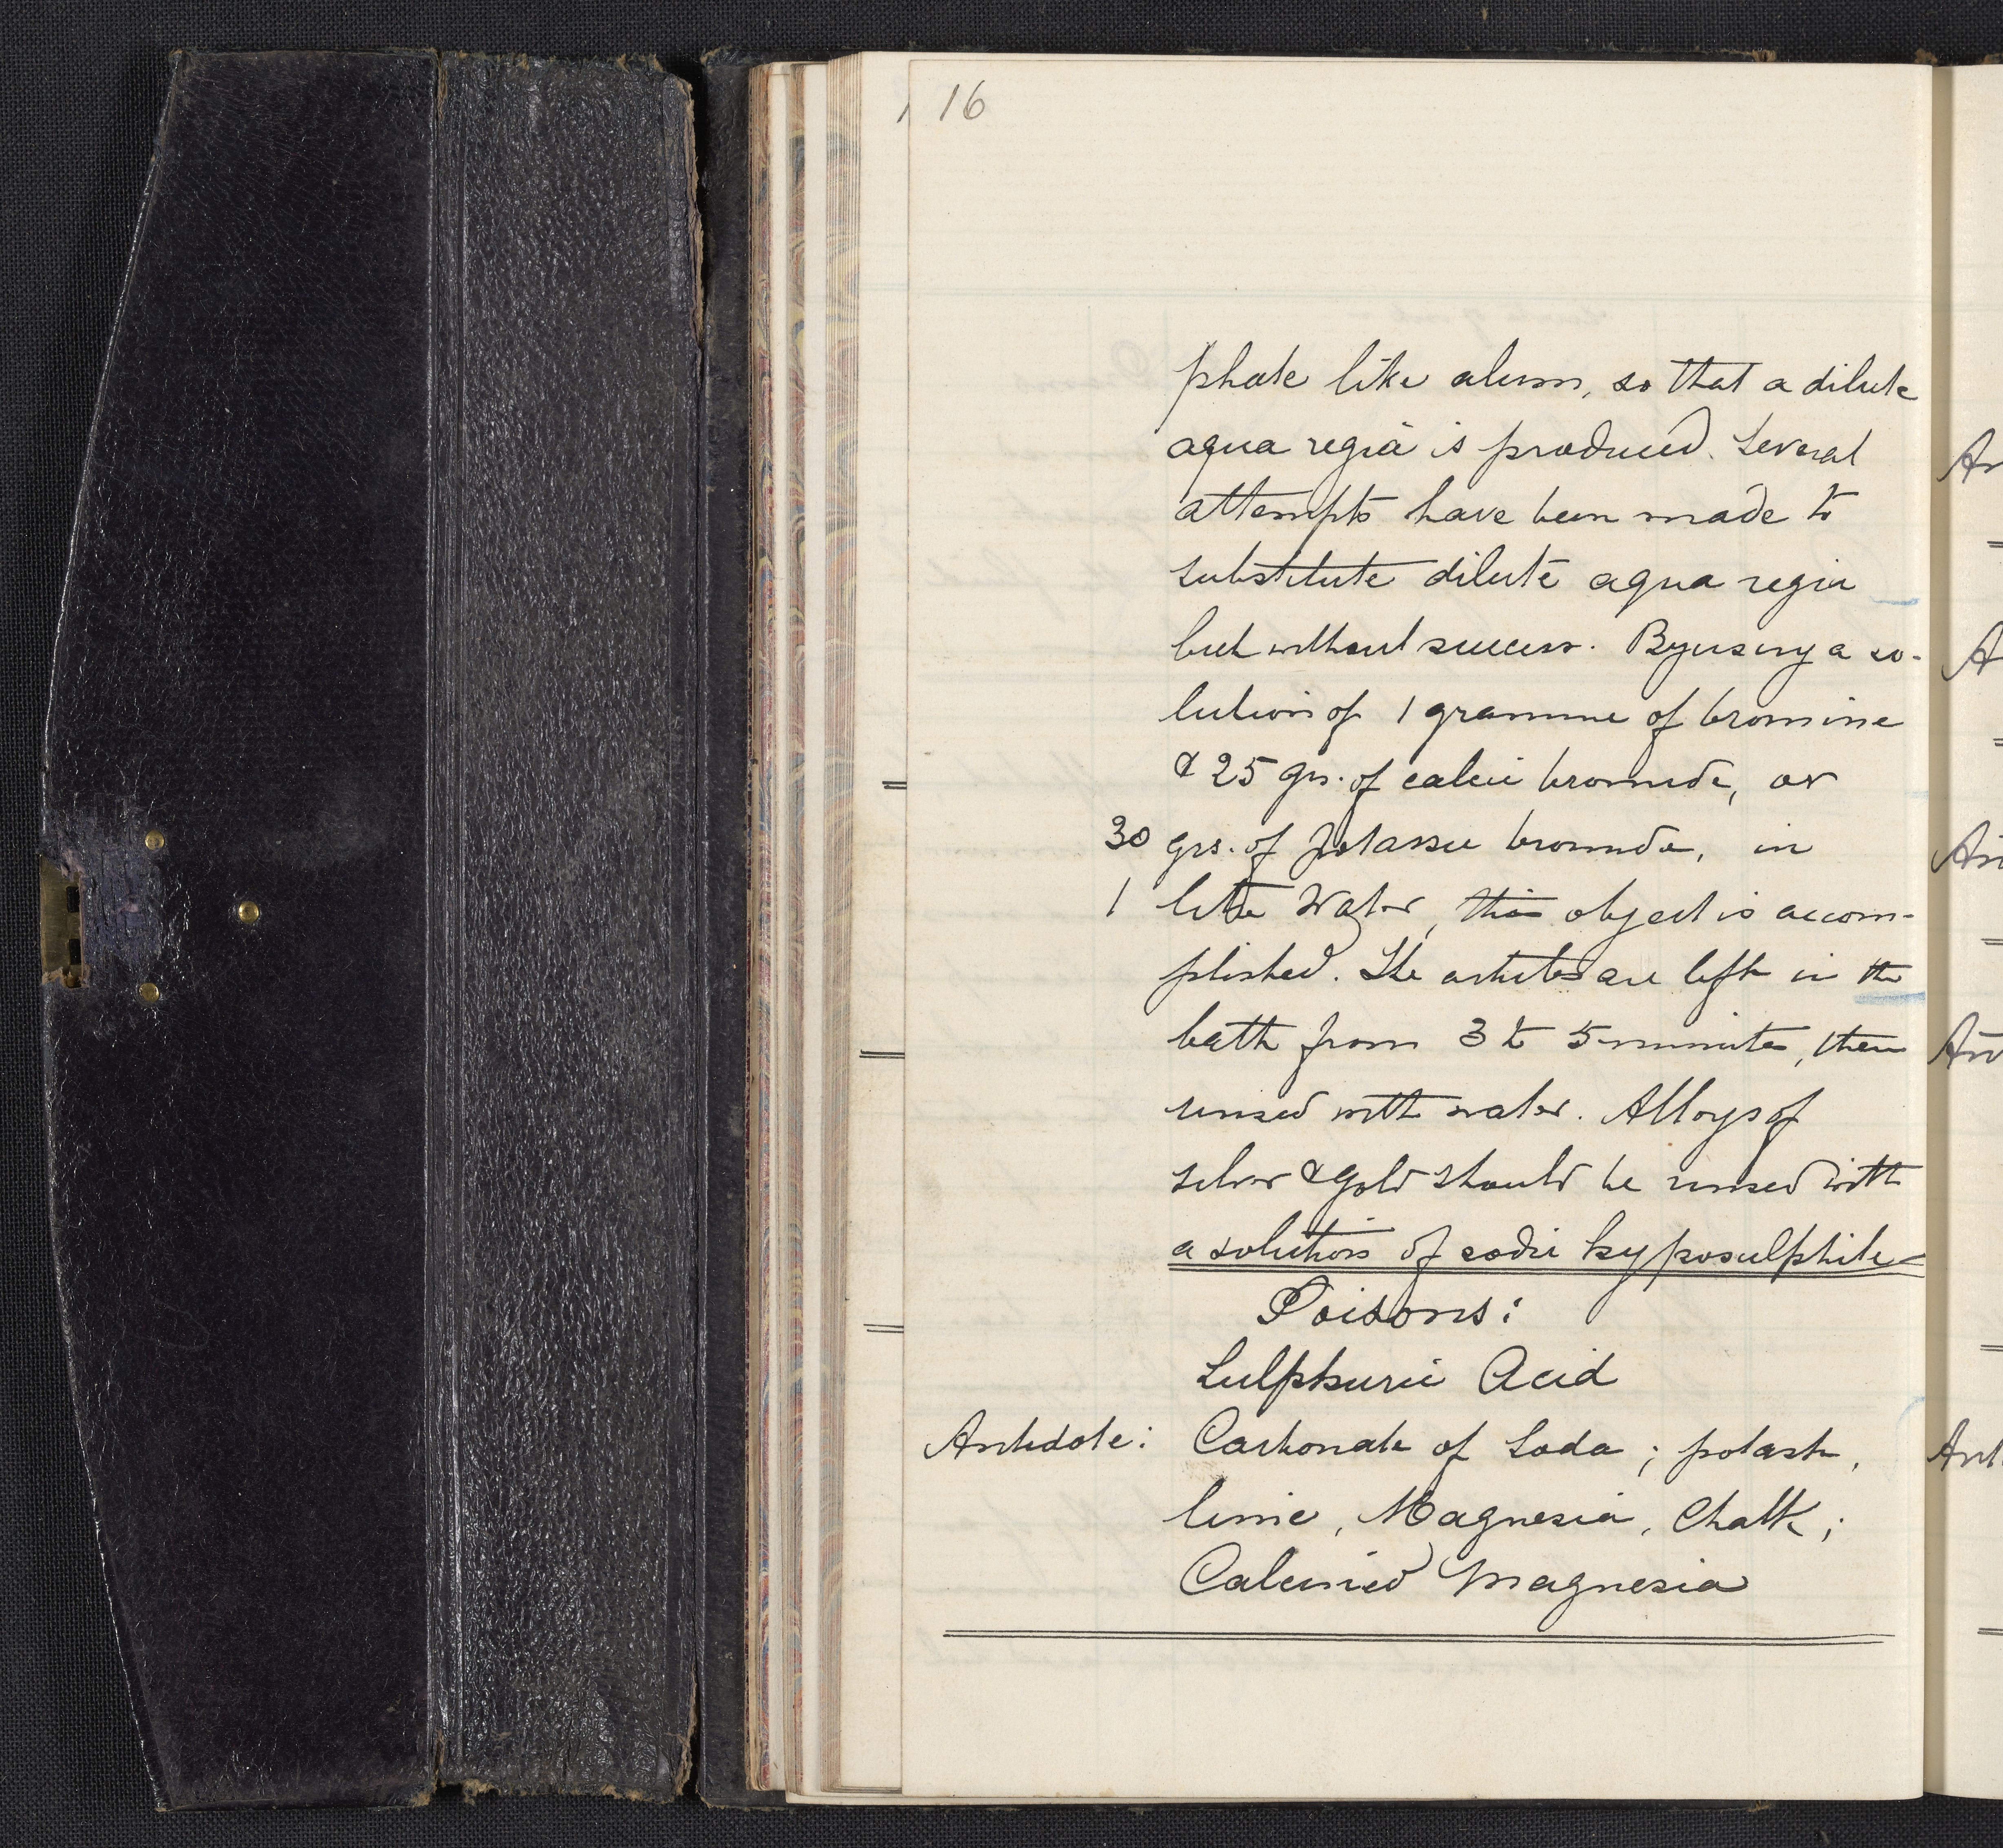 16
phate like alum, so that a dilute
aqua regia is produced. Several
attempts have been made to
substitute dilute aqua regia
but without success. By using a so-
lution of 1 gramme of bromine
& 25 grs. of calcic bromide, or
30 grs. of potassic bromide, in
1 litre Water, this object is accom-
plished. The articles are left in the
bath from 3 to 5 minutes, then
rinsed with water. Alloys of
silver & gold should be rinsed with
a solution of sodic hyposulphite
Poisons:
Sulphuric Acid
Antidote: Carbonate of Soda; potash,
lime, Magnesia, Chalk;
Calcinied Magnesia